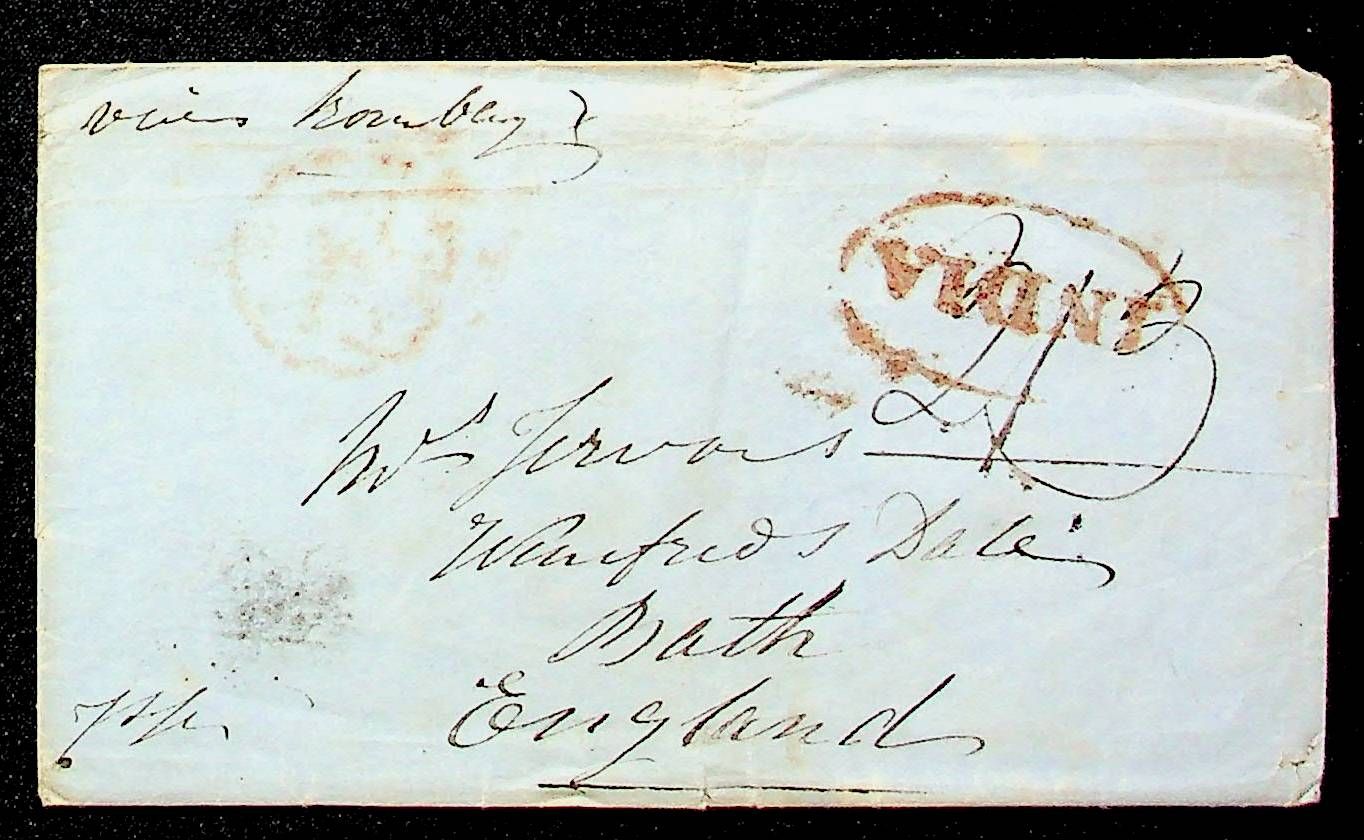 via Bombay
INDIA
Mrs Jervois
Winifreds Dale
Bath
England